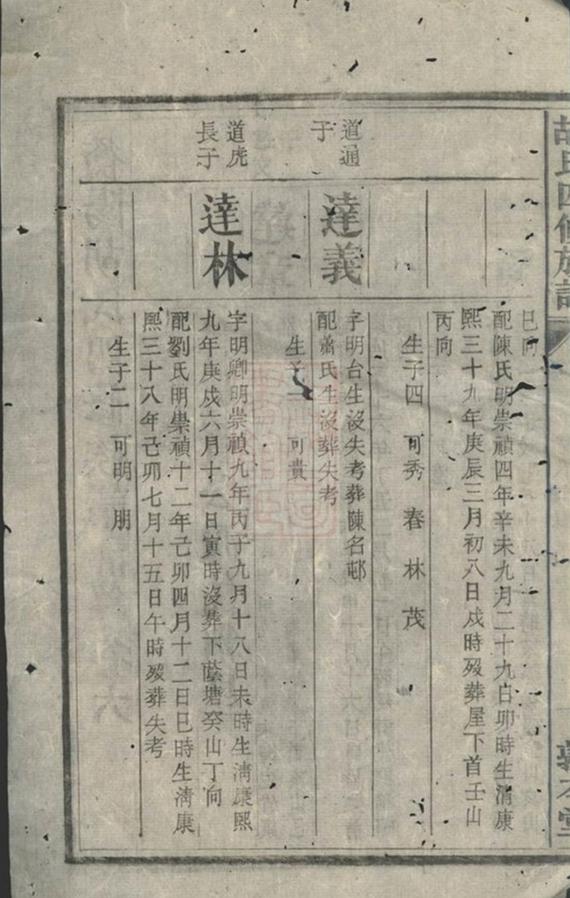 胡氏四修族譜
敦本堂
巳向
配陳氏明崇禎四年辛未九月二十九日卯時生淸康
熙三十九年庚辰三月初八日戌時歿葬屋下首壬山
丙向
生子四 可秀 春 林 茂
道通
子
達義
字明台生沒失考葬陳名邨
配蕭氏生沒葬失考
生子一 可貴
道虎
長子
達林
字明卿明崇禎九年丙子九月十八日未時生淸康熙
九年庚戌六月十一日寅時沒葬下蔭塘癸山丁向
配劉氏明崇禎十二年己卯四月十二日巳時生淸康
熙三十八年己卯七月十五日午時歿葬失考
生子二 可明 朋